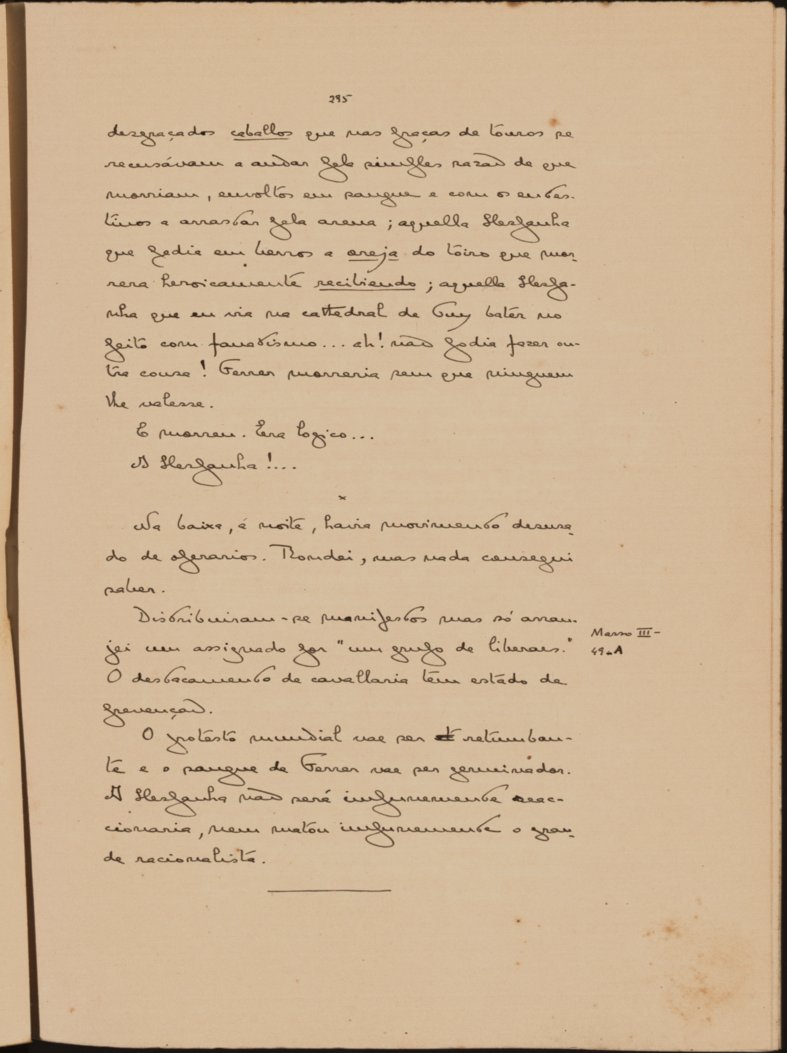 295
desgraçados caballos que nas praças de touros se
recusávam a andar pela simples razaõ de que
morriam, envoltos em sangue e com os intes-
tinos a arrastar pela arena; aquella Hespanha
que pedia em berros a oreja do tôiro que mor-
rera heroicamente recibiendo; aquella Hespa-
nha que eu via na cathedral de Tuy bater no
peito com fanatismo... ah! naõ podia fazer ou-
tra cousa! Ferrer morreria sem que ninguem
lhe valesse.
E morreu. Era logico...
A Hespanha!...
x
Na baixa, á noite, havia movimento desusa-
do de operarios. Rondei, mas nada consegui
saber.
Distribuiram-se manifestos mas só arran-
jei um assignado por "um grupo de liberaes."
Masso III-
49-A
O destacamento de cavallaria tem estado de
prevençaõ.
O protesto mundial vae ser retumban-
te e o sangue de Ferrer vae ser germinador.
A Hespanha naõ será impunemente reac-
cionaria, nem matou impunemente o gran-
de racionalista.